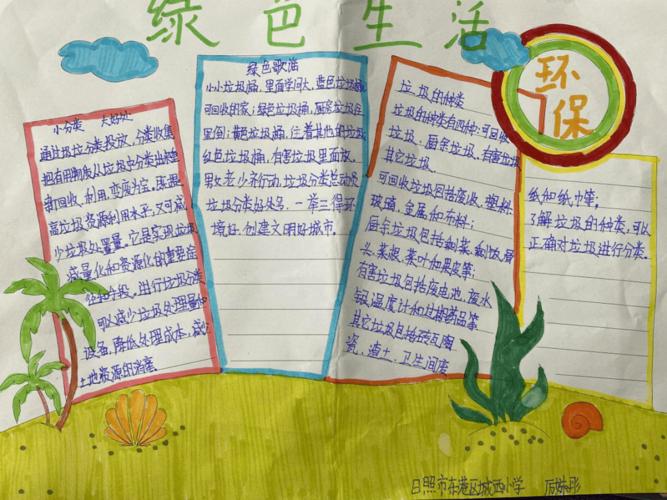 绿色生活
环保
小分类 大好处
通过垃圾分类投放,分类收集
把有用物质从垃圾中分类出来重
新回收、利用,变废为宝,既提
高垃圾资源利用水平,又可减
少垃圾处置量,它是实现垃圾
减量化和资源化的重要途
径和手段。进行垃圾分类
可以减少垃圾处理量和
设备,降低处理成本,减少
土地资源的消耗。
绿色歌谣
小小垃圾桶,里面学问大,蓝色垃圾桶
可回收的家;绿色垃圾桶,厨余垃圾往
里倒;黄色垃圾桶,住着其他的垃圾
红色垃圾桶,有害垃圾里面放。
男女老少齐行动,垃圾分类总动员
垃圾分类好处多,一举三得环
境好,创建文明好城市。
垃圾的种类
垃圾的种类有四种:可回收
垃圾、厨余垃圾、有害垃圾
其它垃圾.
可回收垃圾包括废纸、塑料、
玻璃、金属、和布料;
厨余垃圾包括剩菜、剩饭、骨
头、菜根、茶叶和果皮等;
有害垃圾包括废电池、废水
银温度计和过期药品等
其它垃圾包括砖瓦陶
瓷、渣土、卫生间废
纸和纸巾等;
了解垃圾的种类,可以
正确对垃圾进行分类.
日照市东港区城西小学